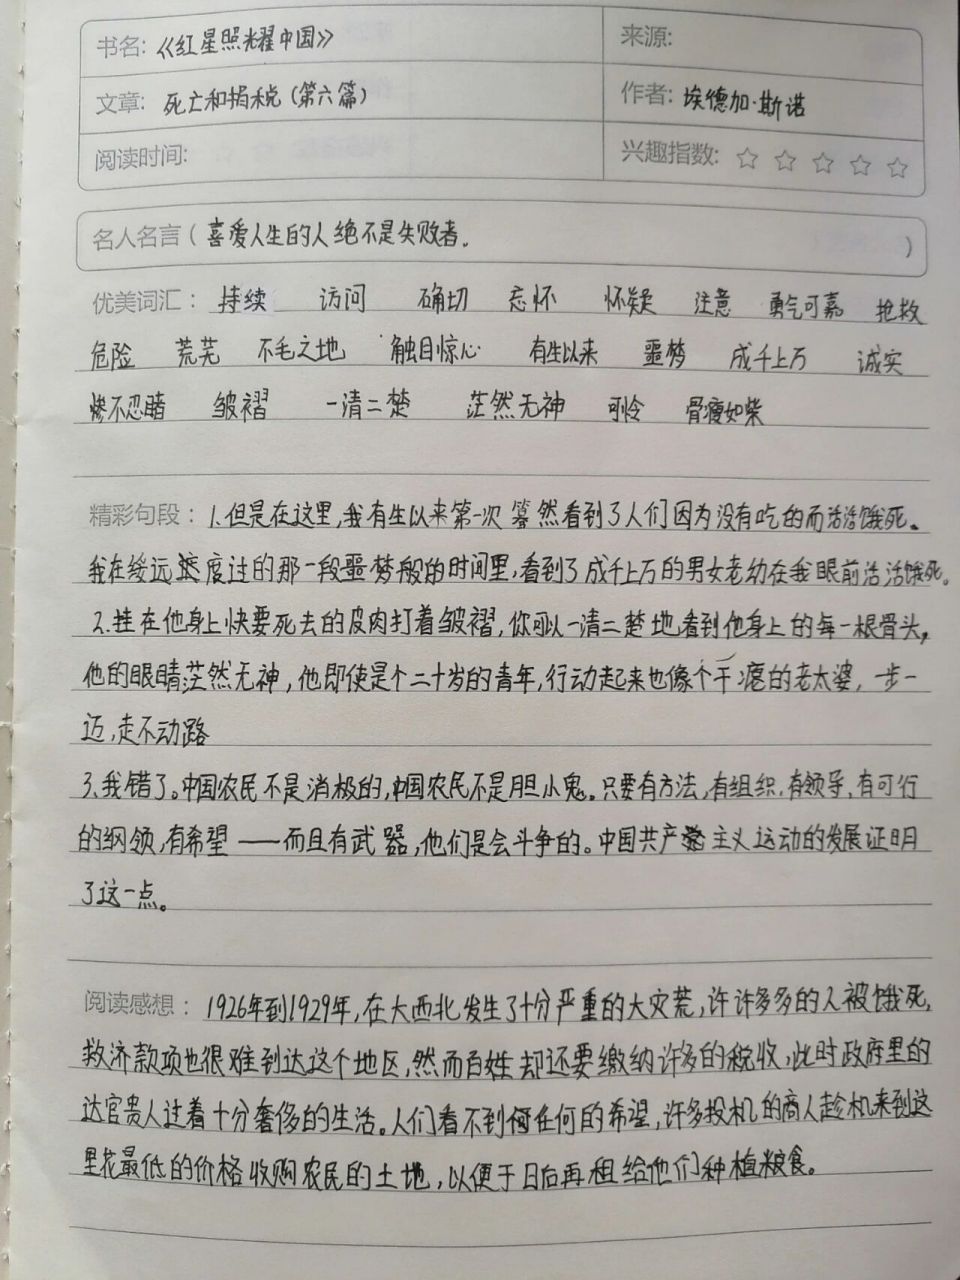 书名: 《红星照耀中国》 来源:
文章: 死亡和捐税(第六篇) 作者: 埃德加·斯诺
阅读时间: 兴趣指数: ☆ ☆ ☆ ☆ ☆
名人名言 ( 喜爱人生的人绝不是失败者。 )
优美词汇: 持续 访问 确切 忘怀 怀疑 注意 勇气可嘉 抢救
危险 荒芜 不毛之地 触目惊心 有生以来 噩梦 成千上万 诚实
惨不忍睹 皱褶 一清二楚 茫然无神 可怜 骨瘦如柴
精彩句段: 1.但是在这里,我有生以来第一次蓦然看到了人们因为没有吃的而活活饿死。
我在绥远度过的那一段噩梦般的时间里,看到了成千上万的男女老幼在我眼前活活饿死。
2.挂在他身上快要死去的皮肉打着皱褶,你可以一清二楚地看到他身上的每一根骨头,
他的眼睛茫然无神,他即使是个二十岁的青年,行动起来也像个干瘪的老太婆,一步一
迈,走不动路
3.我错了。中国农民不是消极的,中国农民不是胆小鬼。只要有方法,有组织,有领导,有可行
的纲领,有希望——而且有武器,他们是会斗争的。中国共产主义运动的发展证明
了这一点。
阅读感想: 1926年到1929年,在大西北发生了十分严重的大灾荒,许许多多的人被饿死,
救济款项也很难到达这个地区,然而百姓却还要缴纳许多的税收,此时政府里的
达官贵人过着十分奢侈的生活。人们看不到任何的希望,许多投机的商人趁机来到这
里花最低的价格收购农民的土地,以便于日后再租给他们种植粮食。